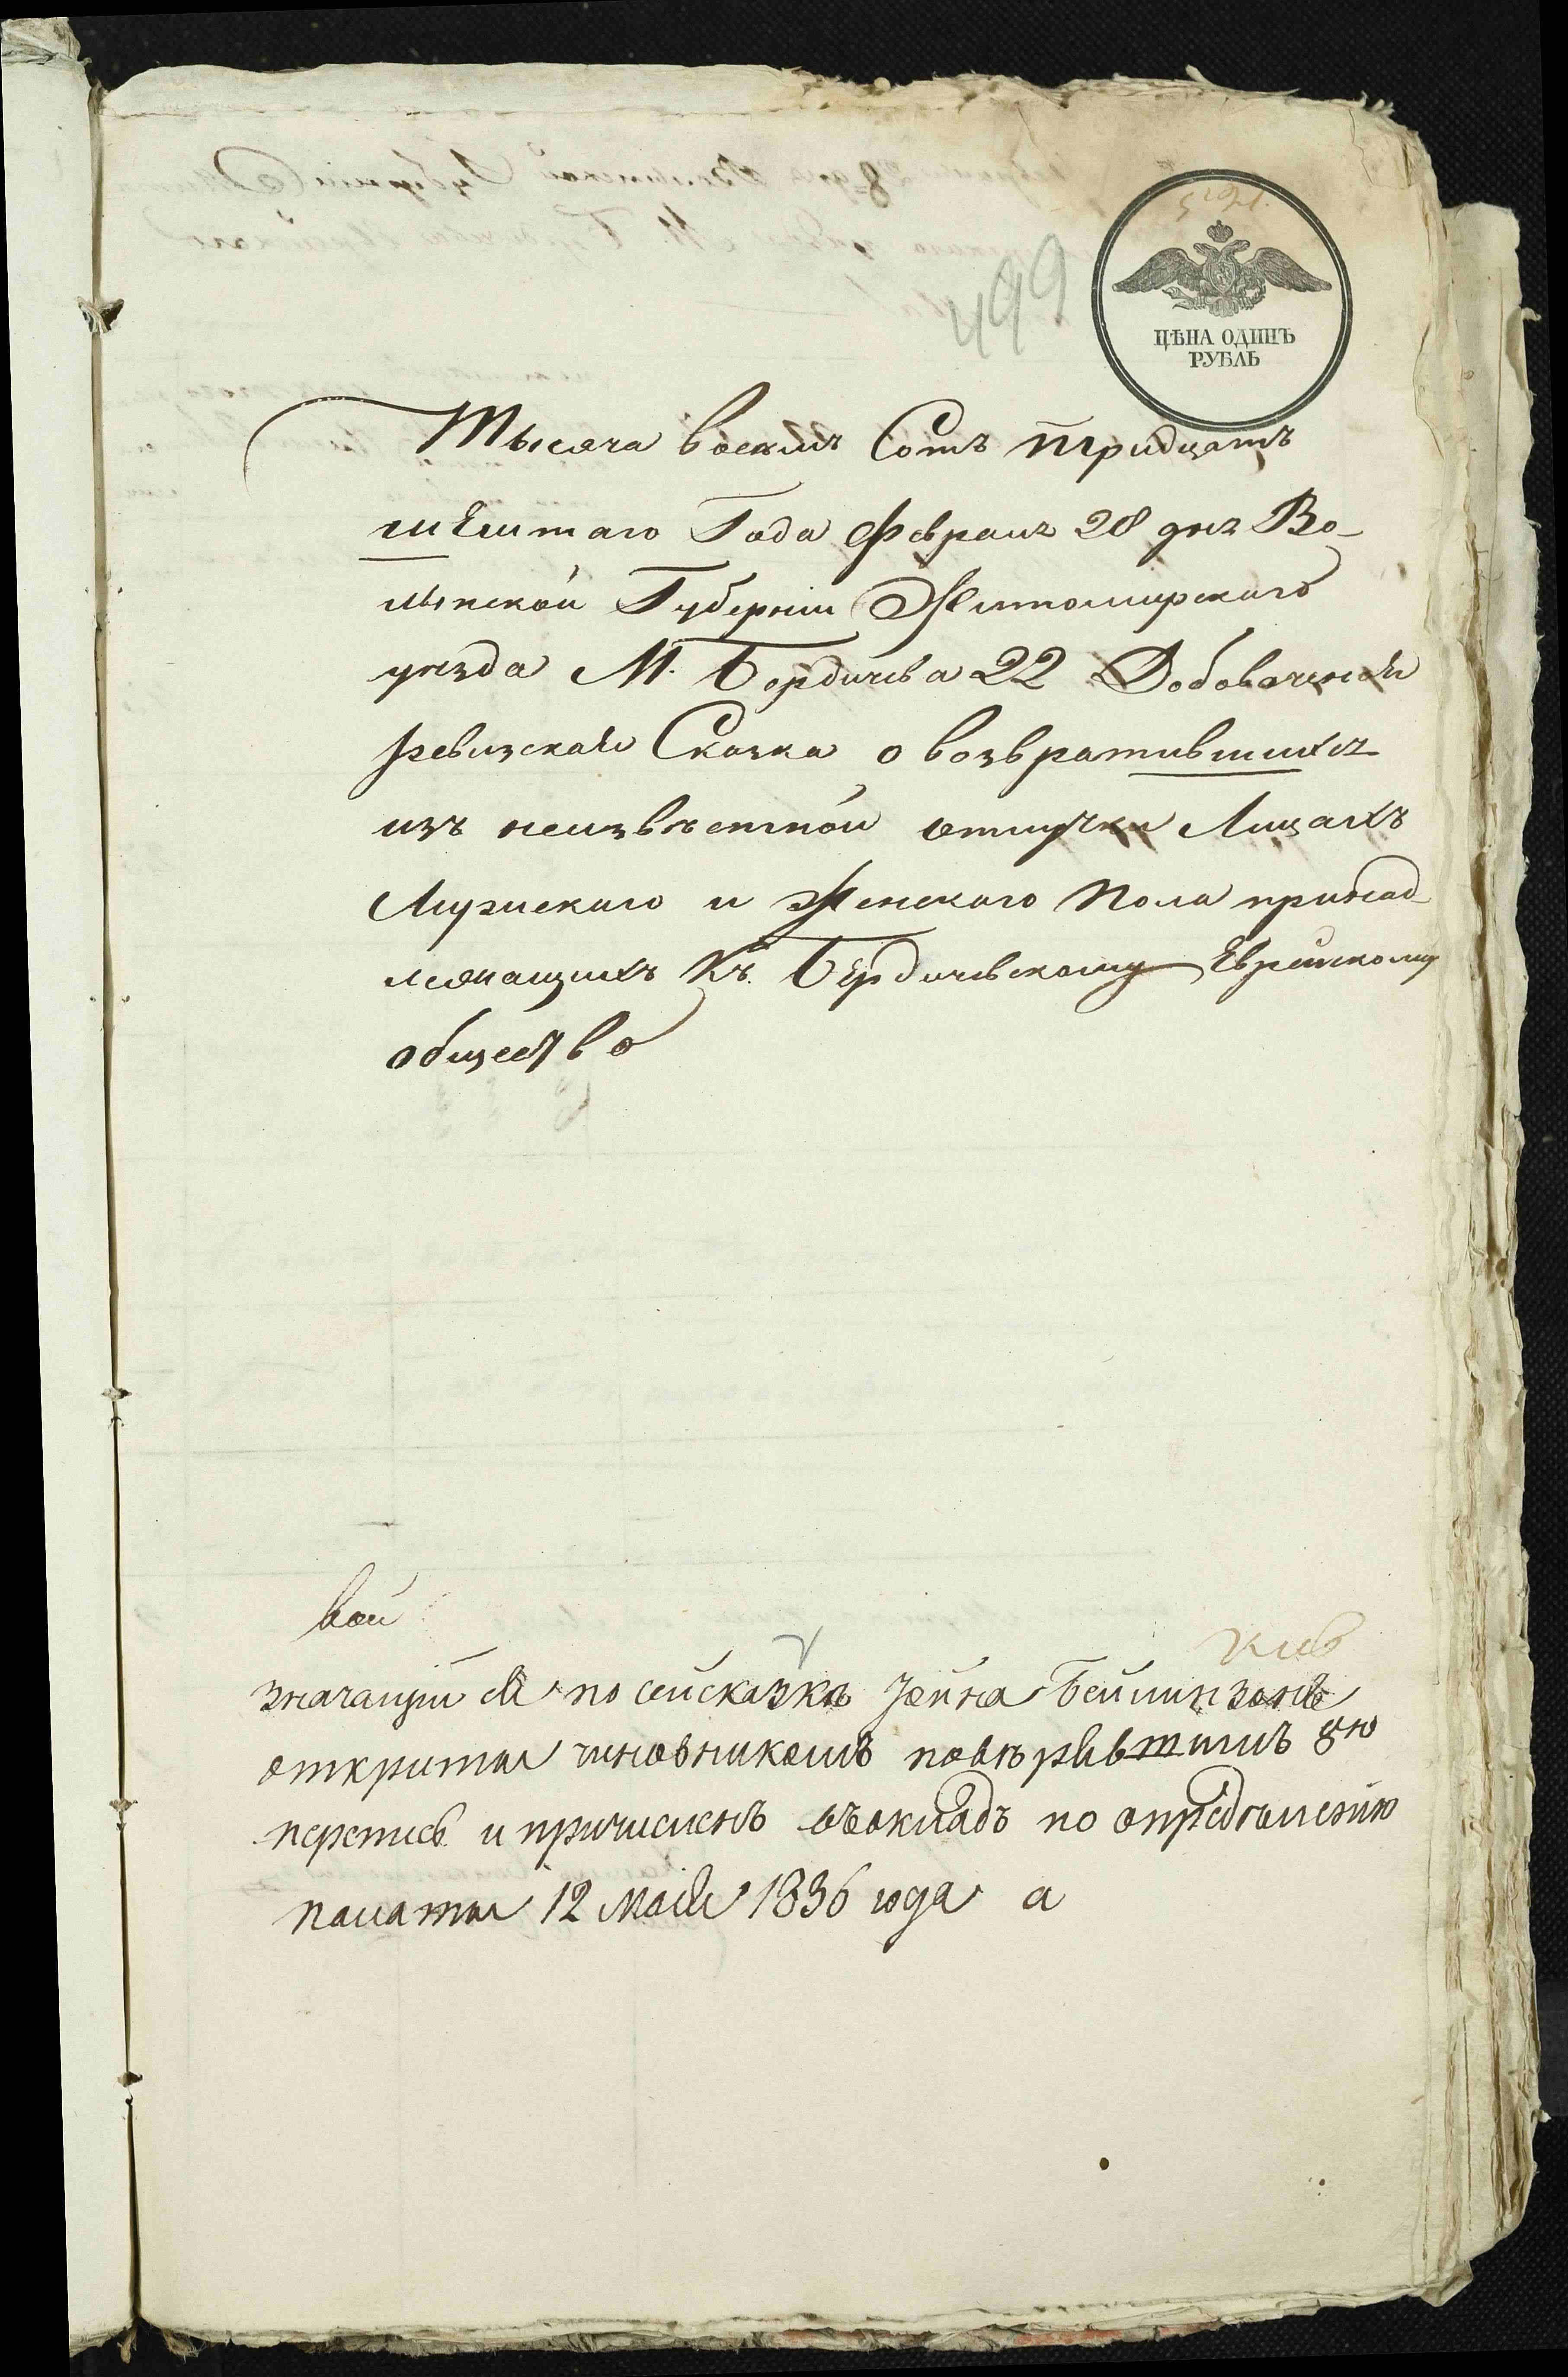 499
ЦѢНА ОДИНЪ
РУБЛЬ
Тысяча восемъ Сотъ тридцатъ
шестаго Года Февраля 28 дня Во-
лынской Губерніи Житомирскаго
уѣзда М. Бердичева 22 Добовачная
ревизская Сказка о возвратившихся
изъ неизвѣстной отлучки Лицахъ
Мужескаго и Женскаго Пола принад-
лежащихъ Къ Бердичевскому Еврейскому
общество
значащійся по сей сказкѣ Бейминзонъ
открыты чиновникомъ повѣрявшимъ
перепись и причисленъ въ окладъ по опредѣленію
палаты 12 Мая 1836 года а